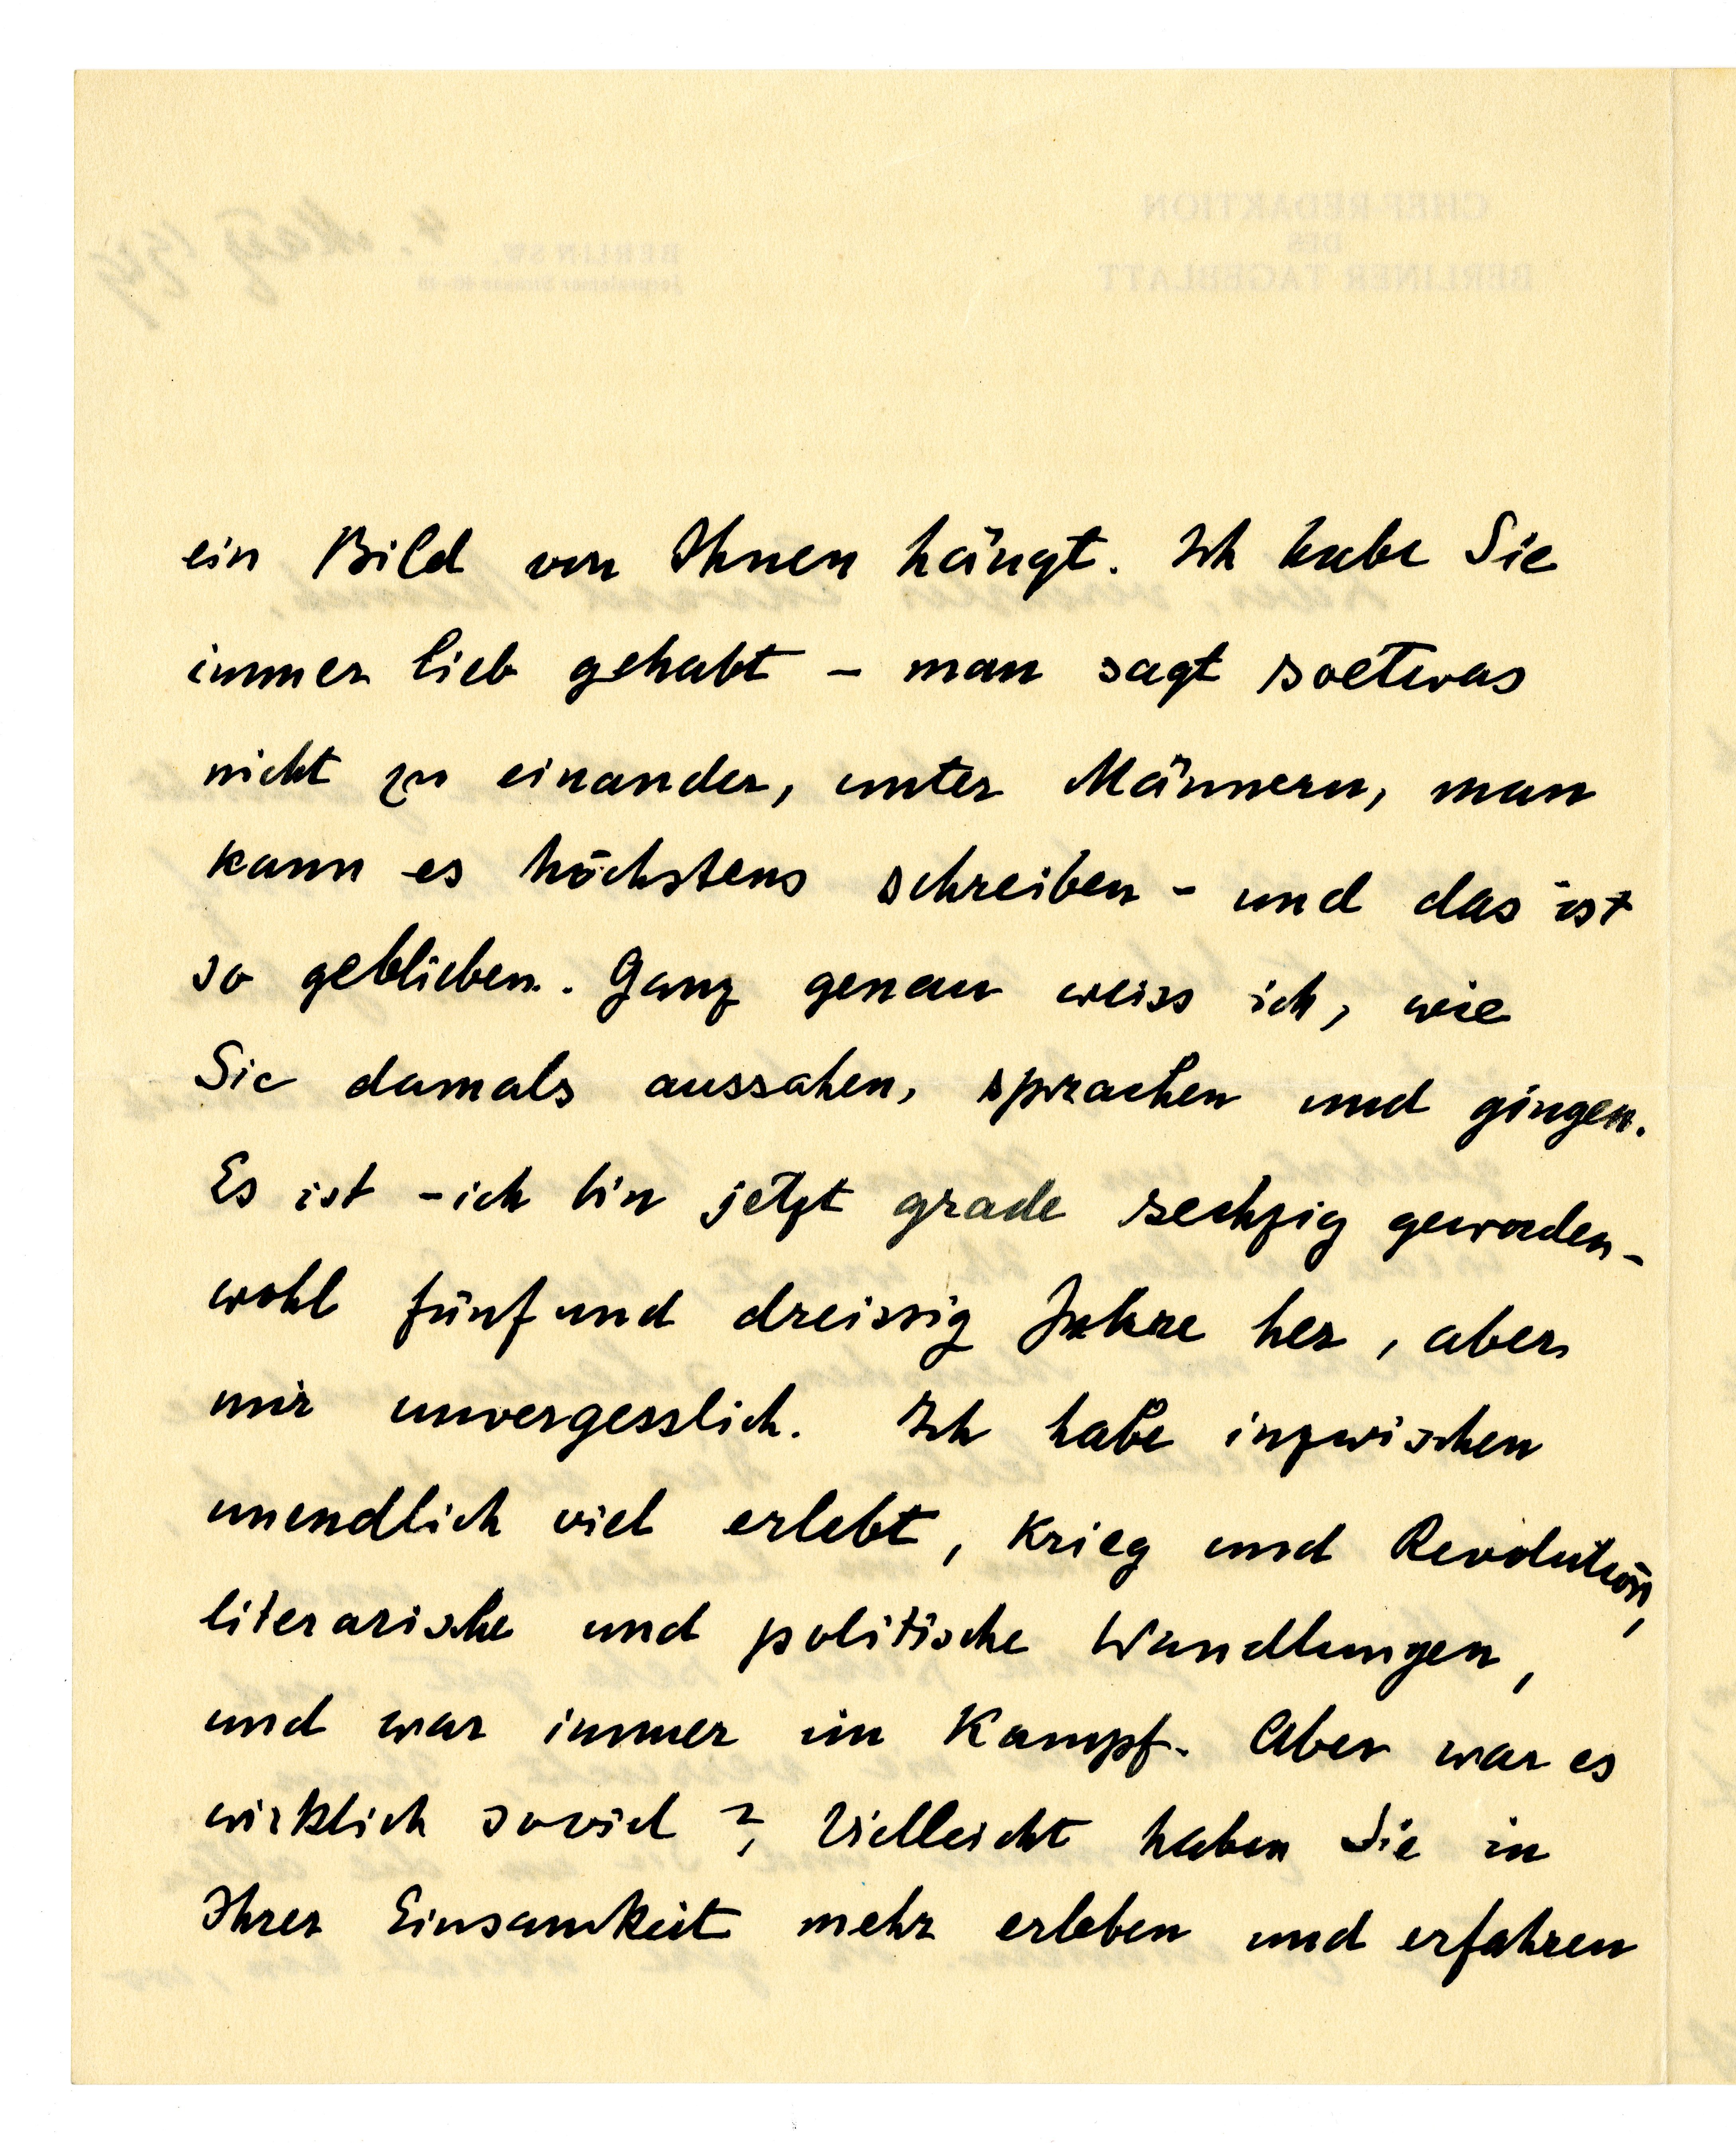 ein Bild von Ihnen hängt. Ich habe Sie
immer lieb gehabt – man sagt soetwas
nicht zu einander, unter Männern, man
kann es höchstens schreiben – und das ist
so geblieben. Ganz genau weiss ich, wie
Sie damals aussahen, sprachen und gingen.
Es ist – ich bin jetzt grade sechzig geworden –
wohl fünf und dreissig Jahre her, aber
mir unvergesslich. Ich habe inzwischen
unendlich viel erlebt, Krieg und Revolution,
literarische und politische Wandlungen,
und war immer im Kampf. Aber war es
wirklich soviel? Vielleicht haben Sie in
Ihrer Einsamkeit mehr erleben und erfahren